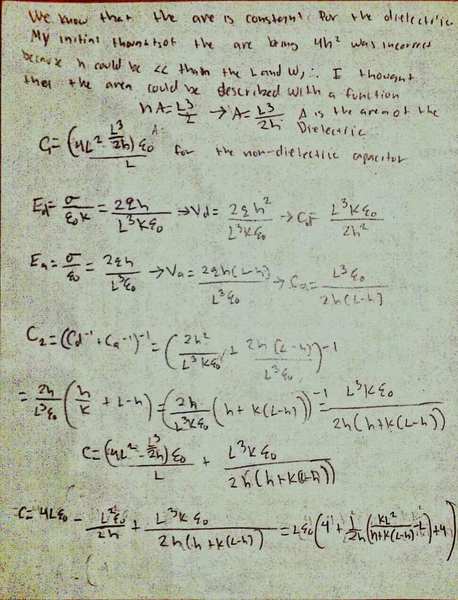 We know that the are is constant for the dielectric
My initial thought of the are being 4h² was incorrect
because h could be << than the L and W, ∴ I thought
that the area could be described with a function
hA = L³/2 → A = L³/2h A is the area of the
Dielectric
C₁ = (4L² - L³/2h) ε₀ / L for the non-dielectric capacitor
E_d = σ/ε₀K = 2qh/L³Kε₀ → V_d = 2qh²/L³Kε₀ → C_d = L³Kε₀/2h²
E_a = σ/ε₀ = 2qh/L³ε₀ → V_a = 2qh(L-h)/L³ε₀ → C_a = L³ε₀/2h(L-h)
C₂ = (C_d⁻¹ + C_a⁻¹)⁻¹ = (2h²/L³Kε₀ + 2h(L-h)/L³ε₀)⁻¹
= 2h/L³ε₀ (h/K + L-h) = (2h/L³Kε₀ (h + K(L-h)))⁻¹ = L³Kε₀/2h(h+K(L-h))
C = (4L² - L³/2h) ε₀ / L + L³Kε₀/2h(h+K(L-h))
C = 4Lε₀ - L²ε₀/2h + L³Kε₀/2h(h+K(L-h)) = Lε₀(4 + 1/2h (KL²/h+K(L-h) - L) + 4)